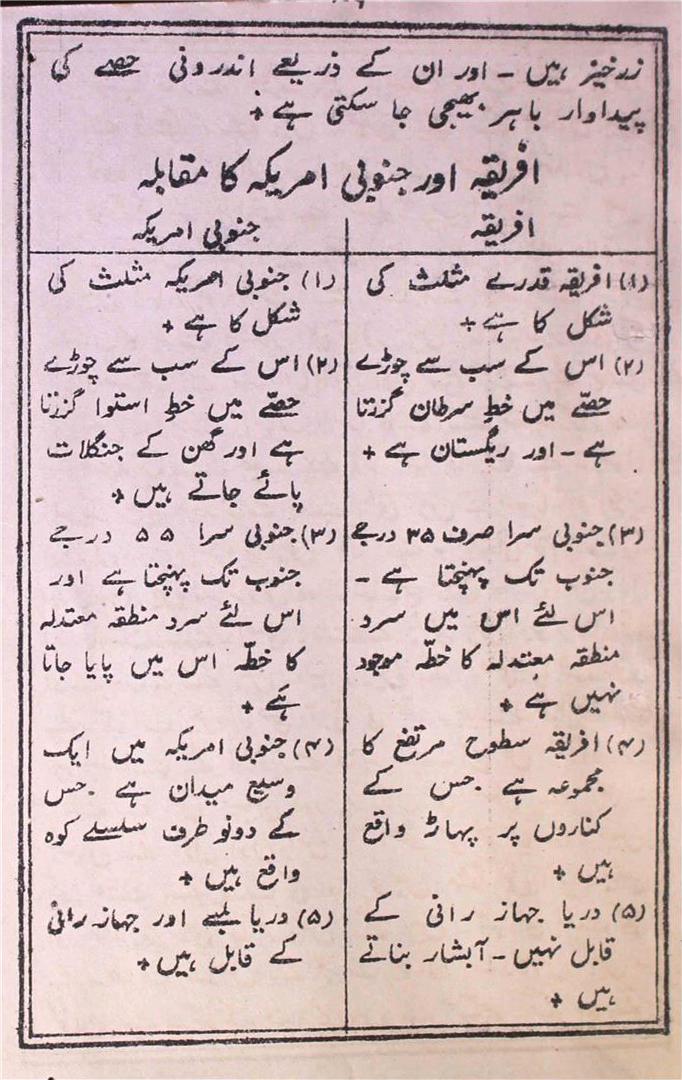 زرخیز ہیں ۔ اور ان کے ذریعے اندرونی حصے کی
پیداوار باہر بھیجی جا سکتی ہے +
افریقہ اور جنوبی امریکہ کا مقابلہ
افریقہ
(۱) افریقہ قدرے مثلث کی
شکل کا ہے +
(۲) اس کے سب سے چوڑے
حصّے میں خطِ سرطان گزرتا
ہے ۔ اور ریگستان ہے +
(۳) جنوبی سرا صرف ۳۵ درجے
جنوب تک پہنچتا ہے ۔
اس لئے اس میں سرد
منطقہ معتدلہ کا خطّہ موجود
نہیں ہے +
(۴) افریقہ سطوح مرتفع کا
مجموعہ ہے جس کے
کناروں پر پہاڑ واقع
ہیں +
(۵) دریا جہاز رانی کے
قابل نہیں ۔ آبشار بناتے
ہیں +
جنوبی امریکہ
(۱) جنوبی امریکہ مثلث کی
شکل کا ہے +
(۲) اس کے سب سے چوڑے
حصّے میں خطِ استوا گزرتا
ہے اور گھن کے جنگلات
پائے جاتے ہیں +
(۳) جنوبی سرا ۵۵ درجے
جنوب تک پہنچتا ہے اور
اس لئے سرد منطقہ معتدلہ
کا خطّہ اس میں پایا جاتا
ہے +
(۴) جنوبی امریکہ میں ایک
وسیع میدان ہے جس
کے دونو طرف سلسلے کوہ
واقع ہیں +
(۵) دریا لمبے اور جہاز رانی
کے قابل ہیں +